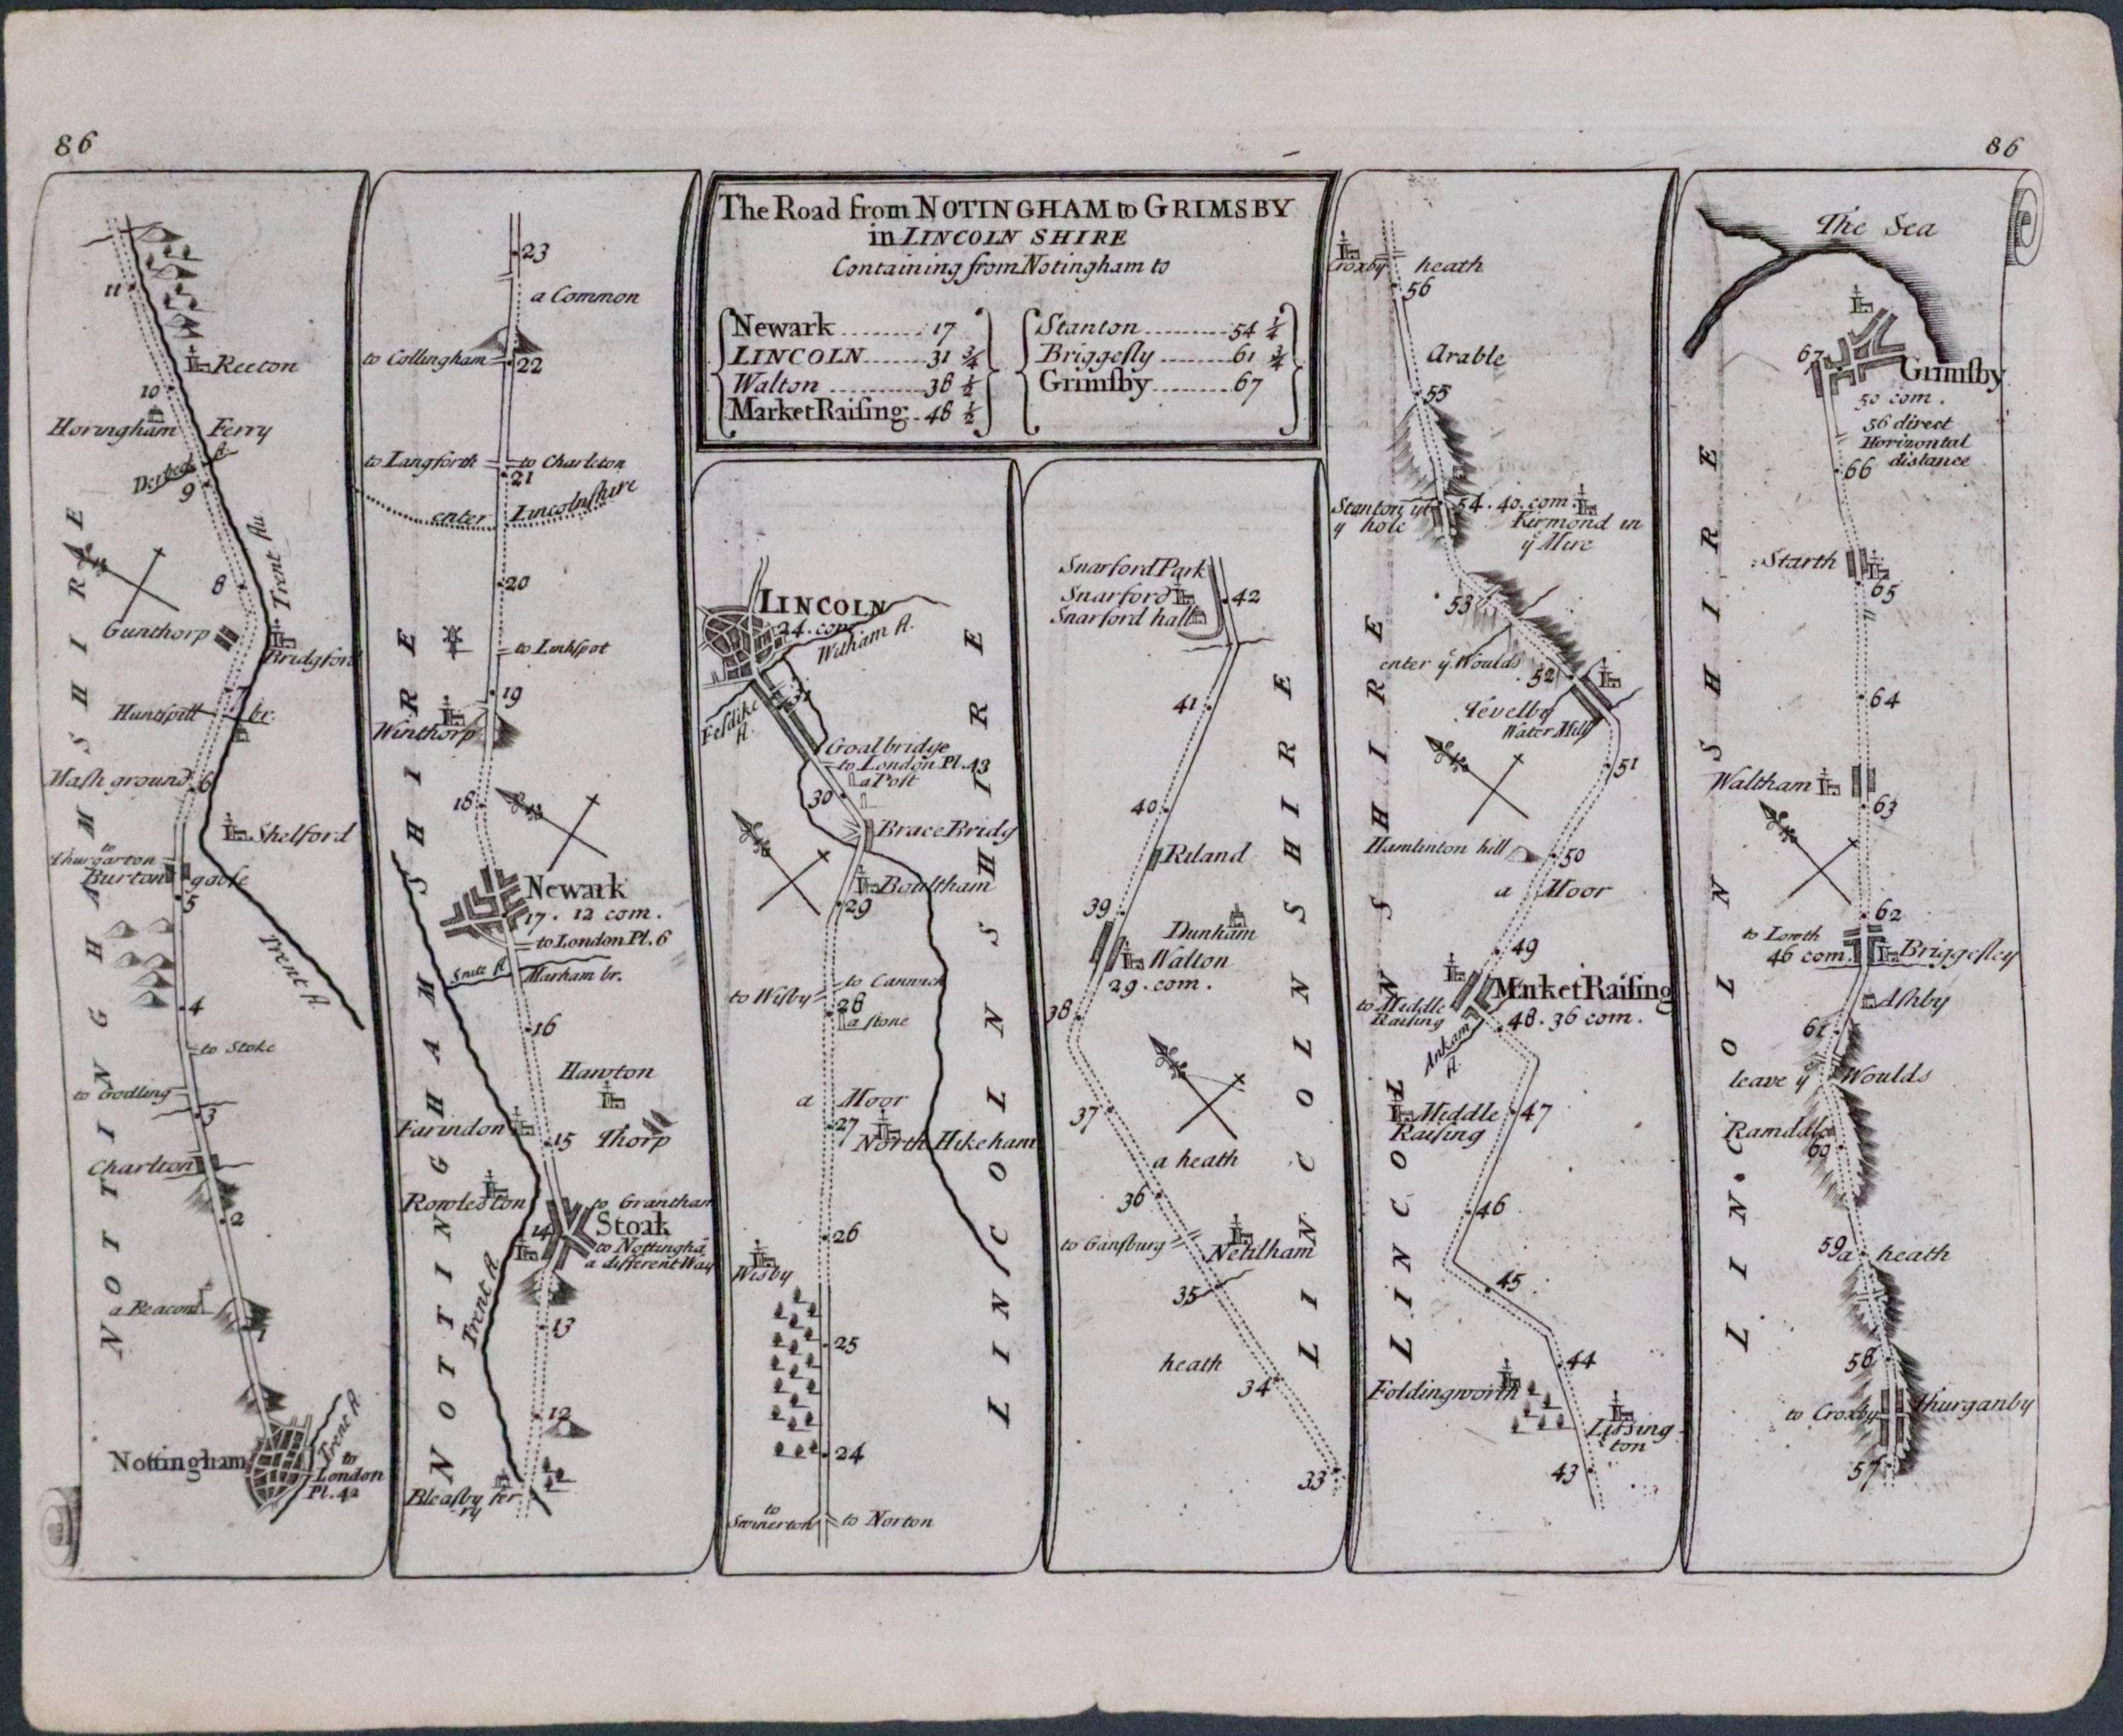 86
86
The Road from NOTINGHAM to GRIMSBY
in LINCOLN SHIRE
Containing from Notingham to
Newark ......... 17
LINCOLN ...... 31 ¾
Walton .......... 38 ½
Market Raiſing .. 48 ½
Stanton ......... 54 ¼
Briggeſly ....... 61 ¾
Grimſby ......... 67
NOTTINGHAM SHIRE
11
Reeton
10
Horingham
Ferry
9
Trent flu
8
Gunthorp
Bridgford
7
Huntſpill
br.
Waſh ground
6
Shelford
to
Thurgarton
Burton
gooſe
5
Trent fl.
4
to Stoke
to Godling
3
Charlton
2
a Beacon
1
Nottingham
Trent fl.
to
London
Pl. 42
NOTTINGHAM SHIRE
23
a Common
to Collingham
22
to Langforth
to Charleton
21
enter Lincolnſhire
20
to Linhſpot
19
Winthorp
18
Newark
17. 12 com.
to London Pl. 6
Snite fl.
Marham br.
16
Hawton
Farindon
15
Thorp
Rowleston
to Grantham
Stoak
14
to Nottinghā
a different Way
Trent fl.
13
12
Bleaſby fer
ry
LINCOLN SHIRE
LINCOLN
24. com
Witham fl.
31
Foſdike
fl.
Goalbridge
to London Pl. 43
a Post
30
Brace Bridg
Boultham
29
to Canwick
to Wisby
28
a ſtone
a Moor
27
North Hikeham
26
Wisby
25
24
to
Swinerton
to Norton
LINCOLN SHIRE
Snarford Park
Snarford
42
Snarford hall
41
40
Riland
39
Dunham
Walton
29. com.
38
37
a heath
36
to Ganſburg
Netilham
35
heath
34
33
LINCOLN SHIRE
Croxby
heath
56
Arable
55
Stanton yt
y hole
54. 40. com.
Kirmond in
y Mire
53
enter y Woulds
52
Tevelby
Water Mill
51
Hamlinton hill
50
a Moor
49
Market Raiſing
to Middle
Raiſing
48. 36 com.
Ankam
fl.
Middle
Raiſing
47
46
45
44
Foldingworth
Liſſing
ton
43
LINCOLN SHIRE
The Sea
67
Grimſby
50 com.
56 direct
Horizontal
distance
66
Starth
65
64
Waltham
63
62
to Lowth
46 com.
Briggeſley
Aſhby
61
leave y Woulds
Ramddle
60
59
a heath
58
to Croxby
Thurganby
57